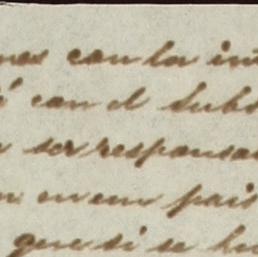 nes con la in
é con el subs
ser responsa
n en un pais
que si se hu